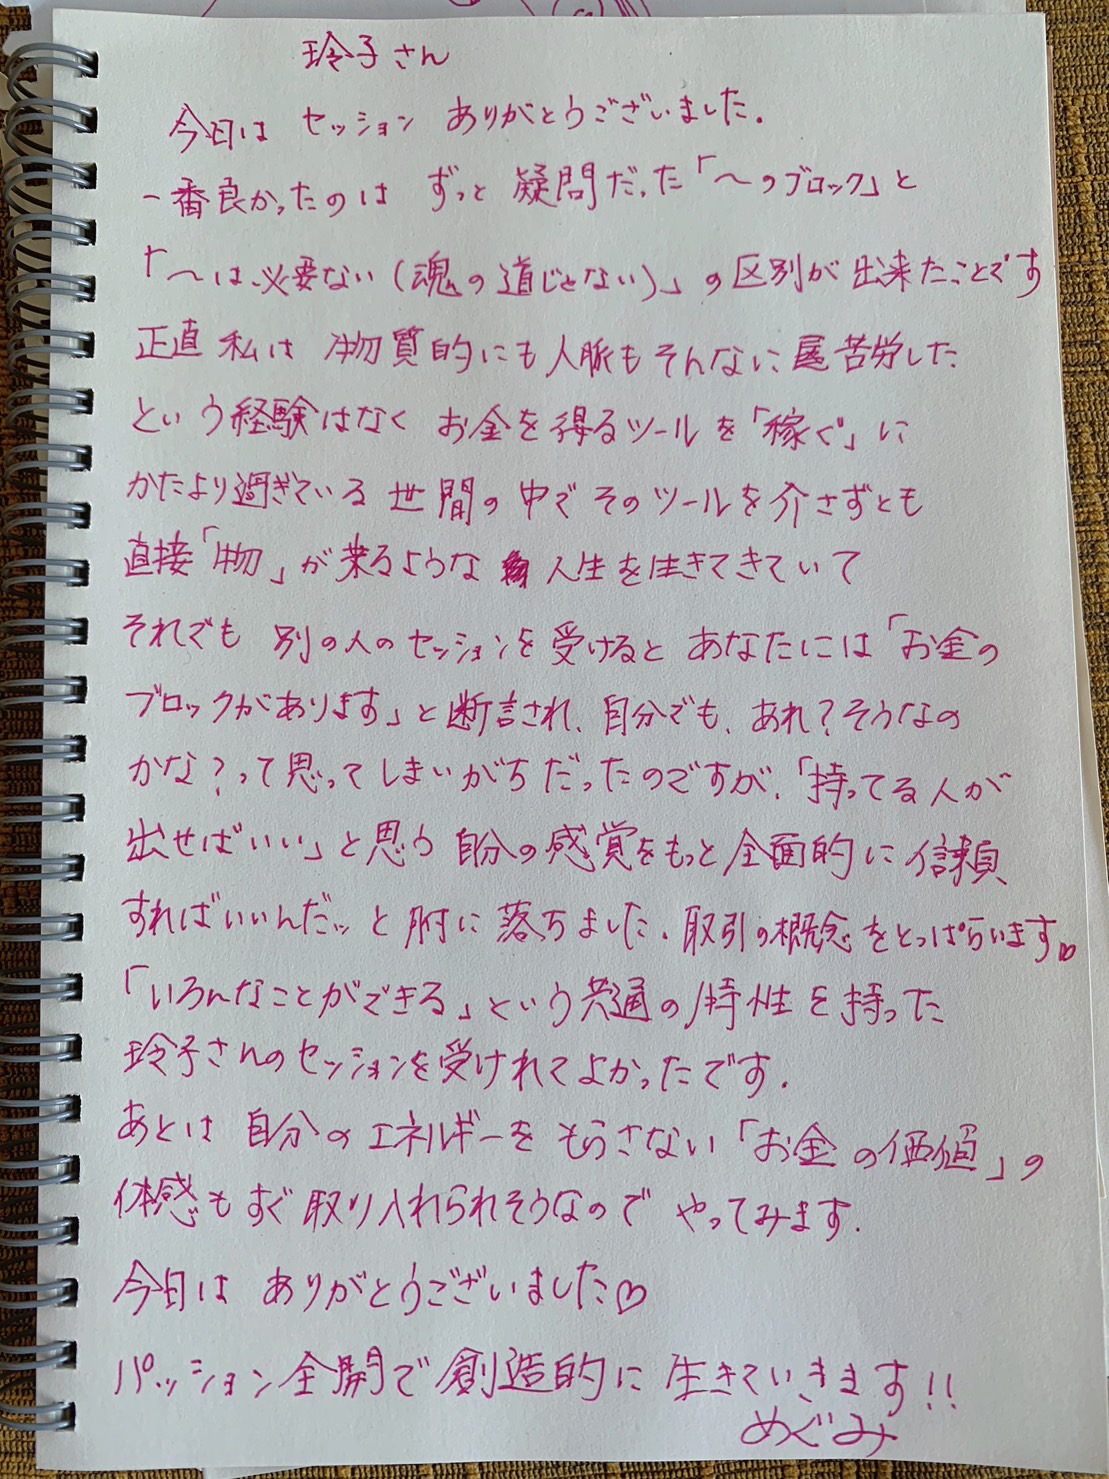 玲子さん
今日は セッション ありがとうございました。
一番良かったのは ずっと 疑問だった「〜のブロック」と
「〜は必要ない(魂の道じゃない)」の区別が出来たことです
正直 私は 物質的にも人脈もそんなに 苦労した
という経験はなく お金を得るツールを「稼ぐ」に
かたより過ぎている 世間の中で そのツールを介さずとも
直接「物」が来るような 人生を生きてきていて
それでも 別の人のセッションを受けると あなたには「お金の
ブロックがあります」と断言され、自分でも、あれ?そうなの
かな?って思ってしまいがちだったのですが、「持ってる人が
出せばいい」と思う 自分の感覚をもっと全面的に信頼
すればいいんだッと 腑に落ちました。取引の概念をとっぱらいます♡
「いろんなことができる」という共通の特性を持った
玲子さんのセッションを受けれてよかったです。
あとは 自分のエネルギーを もらさない「お金の価値」の
体感もすぐ取り入れられそうなので やってみます。
今日は ありがとうございました♡
パッション全開で創造的に 生きていきます!!
めぐみ